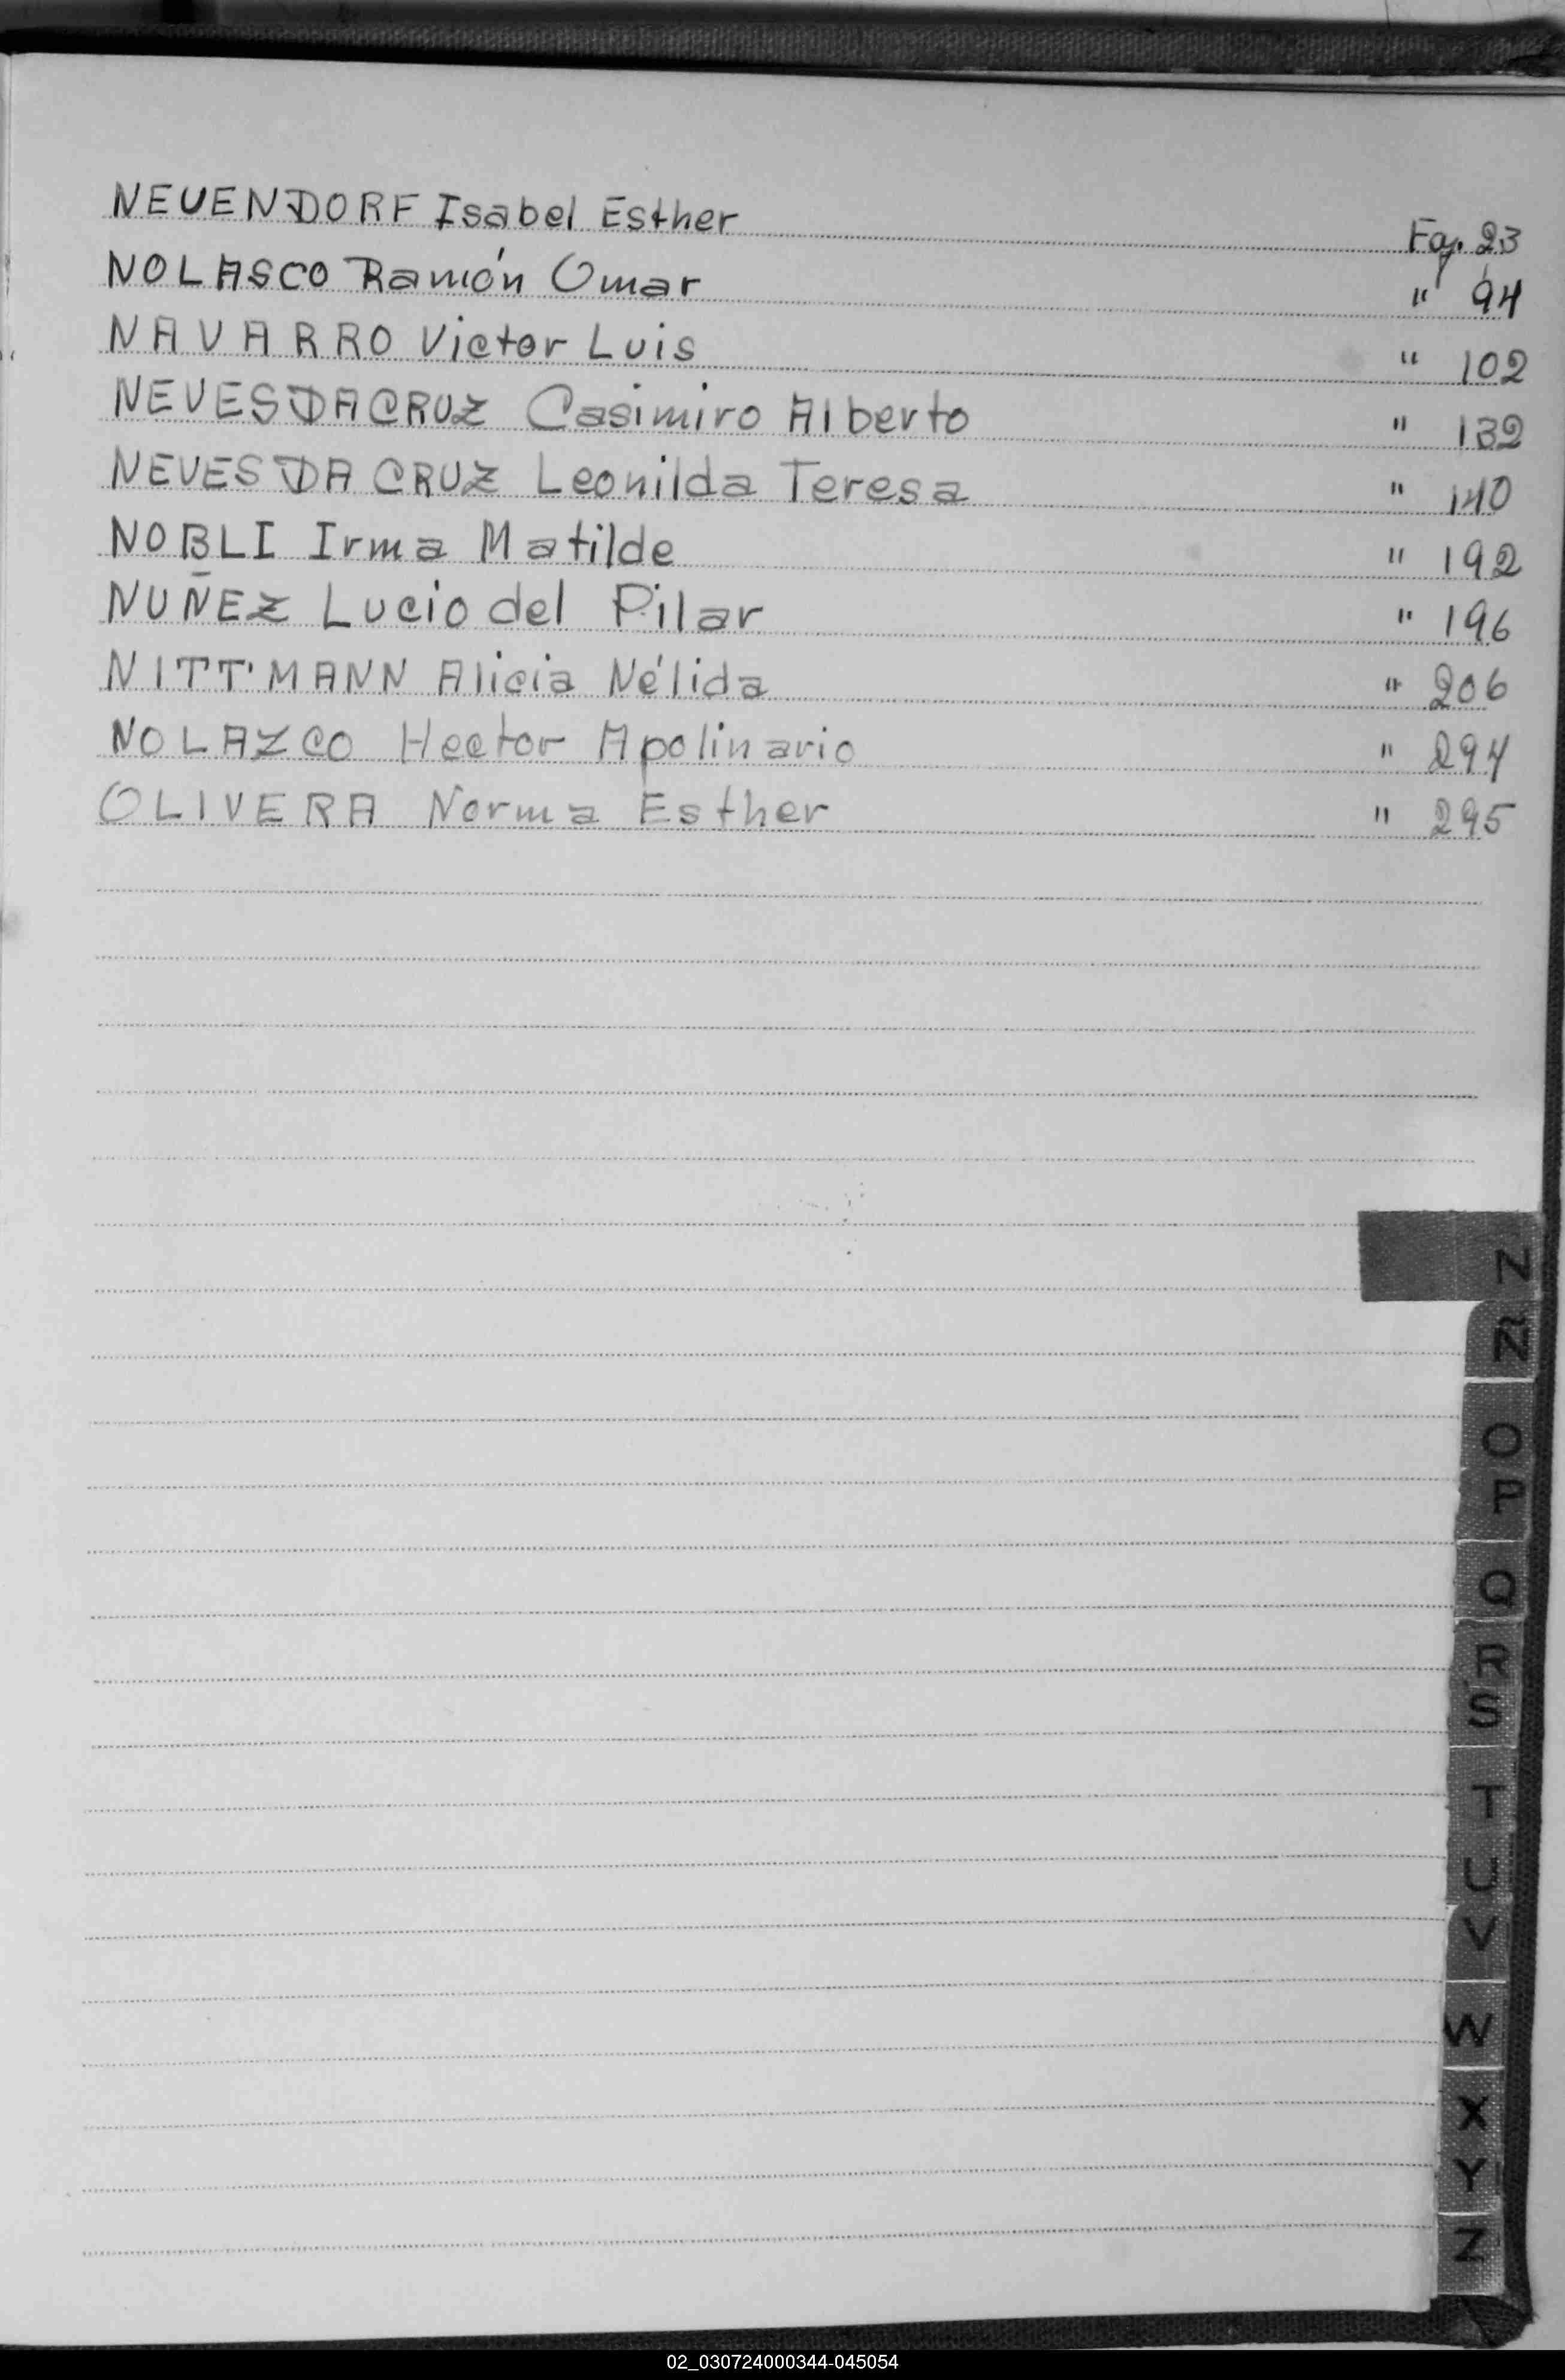 NEUENDORF Isabel Esther Fap. 23
NOLASCO Ramón Omar " 94
NAVARRO Victor Luis " 102
NEVES DA CRUZ Casimiro Alberto " 132
NEVES DA CRUZ Leonilda Teresa " 140
NOBLI Irma Matilde " 192
NUÑEZ Lucio del Pilar " 196
NITTMANN Alicia Nélida " 206
NOLAZCO Hector Apolinario " 294
OLIVERA Norma Esther " 295
N
Ñ
O
P
Q
R
S
T
U
V
W
X
Y
Z
02_030724000344-045054